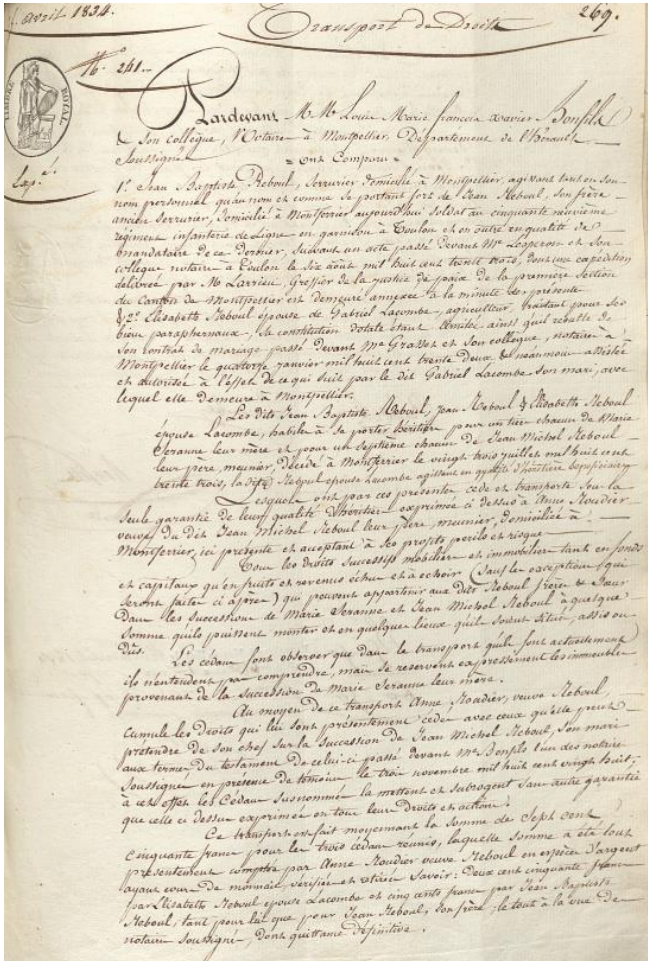 avril 1834.
Transport de Droits
269.
N.° 241.
TIMBRE ROYAL.
Exp.é
Pardevant M.e M.e Louis Marie francois xavier Bonfils
& son collègue, Notaires à Montpellier, Département de l'hérault
Soussignés
= ont Comparu =
1.° Jean Baptiste Reboul, serrurier domicilié à Montpellier, agissant tant en son
nom personnel qu'au nom et comme se portant fort de Jean Reboul, son frère
ancien serrurier, domicilié à Montferrier aujourd'hui soldat au cinquante neuvième
régiment infanterie de ligne en garnison à Toulon et en outre en qualité de
mandataire de ce dernier, suivant un acte passé devant M.e Lesperon et son
collègue notaire à Toulon le six août mil huit cent trente trois, dont une expédition
délivrée par M. Larrieu, Greffier de la justice de paix de la première section
du Canton de Montpellier est demeurée annexée à la minute des présentes
& 2.° Elisabeth Reboul épouse de Gabriel Lacombe, agriculteur, traitant pour ses
biens paraphernaux, sa constitution dotale étant limitée ainsi qu'il résulte de
son contrat de mariage passé devant M.e Grasset et son collègue, notaires à
Montpellier le quatorze janvier mil huit cent trente deux, & néanmoins assistée
et autorisée à l'effet de ce qui suit par le dit Gabriel Lacombe son mari, avec
lequel elle demeure à Montpellier.
Les dits Jean Baptiste Reboul, Jean Reboul & Elisabeth Reboul
épouse Lacombe, habiles à se porter héritiers pour un tiers chacun de Marie
Seranne leur mère et pour un septième chacun de Jean Michel Reboul
leur père, meunier, décédé à Montferrier le vingt trois juillet mil huit cent
trente trois, la dite Reboul épouse Lacombe agissant en qualité d'héritière bénéficiaire
Lesquels ont par ces présentes, cédé et transporté sous la
seule garantie de leur qualité d'héritiers exprimée ci dessus à Anne Roudier
veuve du dit Jean Michel Reboul leur père, meunier, domiciliée à
Montferrier, ici présente et acceptant à ses profits périls et risques
Tous les droits successifs mobiliers et immobiliers tant en fonds
et capitaux qu'en fruits et revenus échus et à échoir (sauf les exceptions qui
seront faites ci après) qui peuvent appartenir aux dits Reboul frères & sœur
dans les successions de Marie Seranne et Jean Michel Reboul à quelque
somme qu'ils puissent monter et en quelques lieux qu'ils soient situés, assis ou
dûs.
Les cédans font observer que dans le transport qu'ils font actuellement
ils n'entendent pas comprendre, mais se réservent expressément les immeubles
provenant de la succession de Marie Seranne leur mère.
Au moyen de ce transport Anne Roudier, veuve Reboul,
cumule les droits qui lui sont présentement cédés avec ceux qu'elle peut
prétendre de son chef sur la succession de Jean Michel Reboul, son mari
aux termes du testament de celui-ci passé devant M.e Bonfils l'un des notaires
soussignés en présence de témoins le trois novembre mil huit cent vingt huit;
à cet effet les Cédans susnommés la mettent et subrogent sans autre garantie
que celle ci dessus exprimée en tous leurs droits et actions.
Ce transport est fait moyennant la somme de sept cent
cinquante francs pour les trois cédans réunis, laquelle somme a été tout
présentement comptée par Anne Roudier veuve Reboul en espèces d'argent
ayant cours de monnaie, vérifiée et retirée savoir: Deux cent cinquante francs
par Elisabeth Reboul épouse Lacombe et cinq cents francs par Jean Baptiste
Reboul, tant pour lui que pour Jean Reboul, son frère; le tout à la vue des
notaires soussignés, dont quittance définitive.